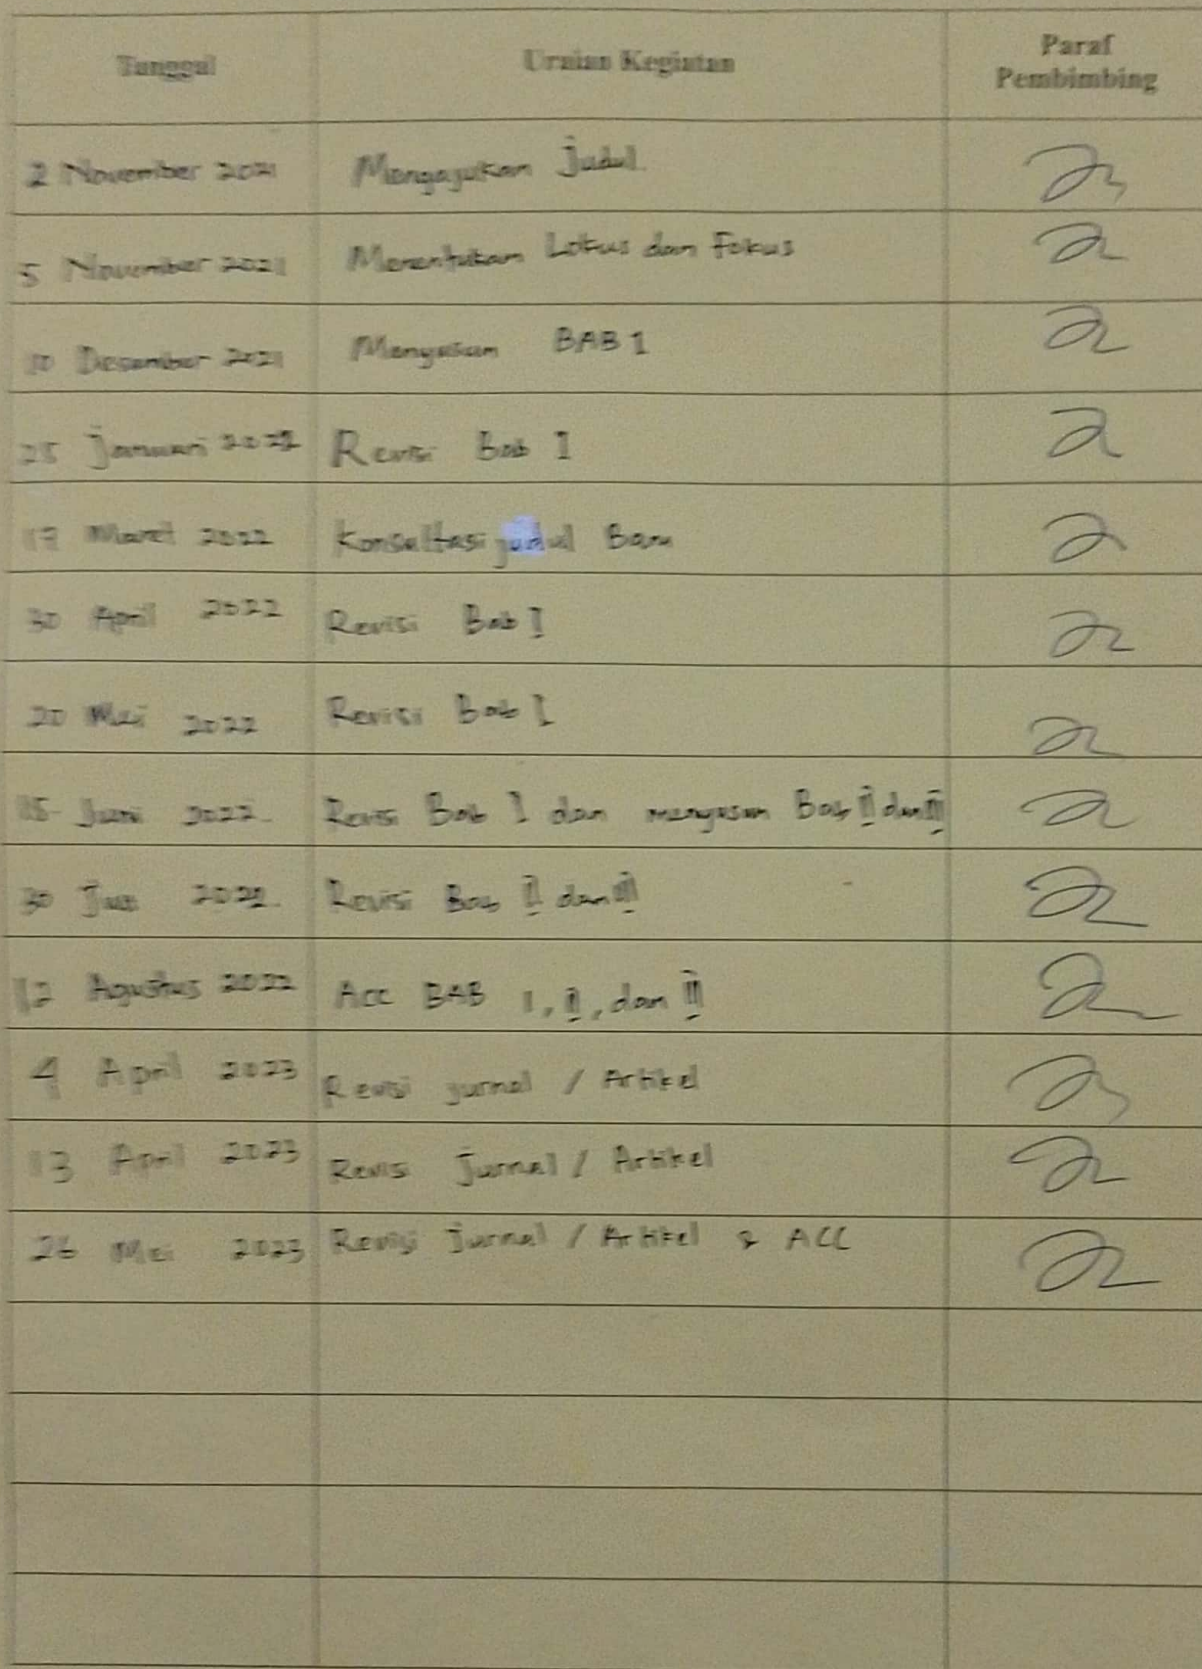 Tanggal Uraian Kegiatan Paraf
Pembimbing
2 November 2021 Mengajukan Judul
5 November 2021 Menentukan Lokus dan Fokus
10 Desember 2021 Menyusun BAB 1
25 Januari 2022 Revisi Bab I
17 Maret 2022 Konsultasi judul Baru
30 April 2022 Revisi Bab I
20 Mei 2022 Revisi Bab I
15 Juni 2022 Revisi Bab I dan menyusun Bab II dan III
30 2022 Revisi Bab II dan III
12 Agustus 2022 Acc BAB I, II, dan III
4 April 2023 Revisi jurnal / Artikel
13 April 2023 Revisi Jurnal / Artikel
26 Mei 2023 Revisi Jurnal / Artikel & ACC